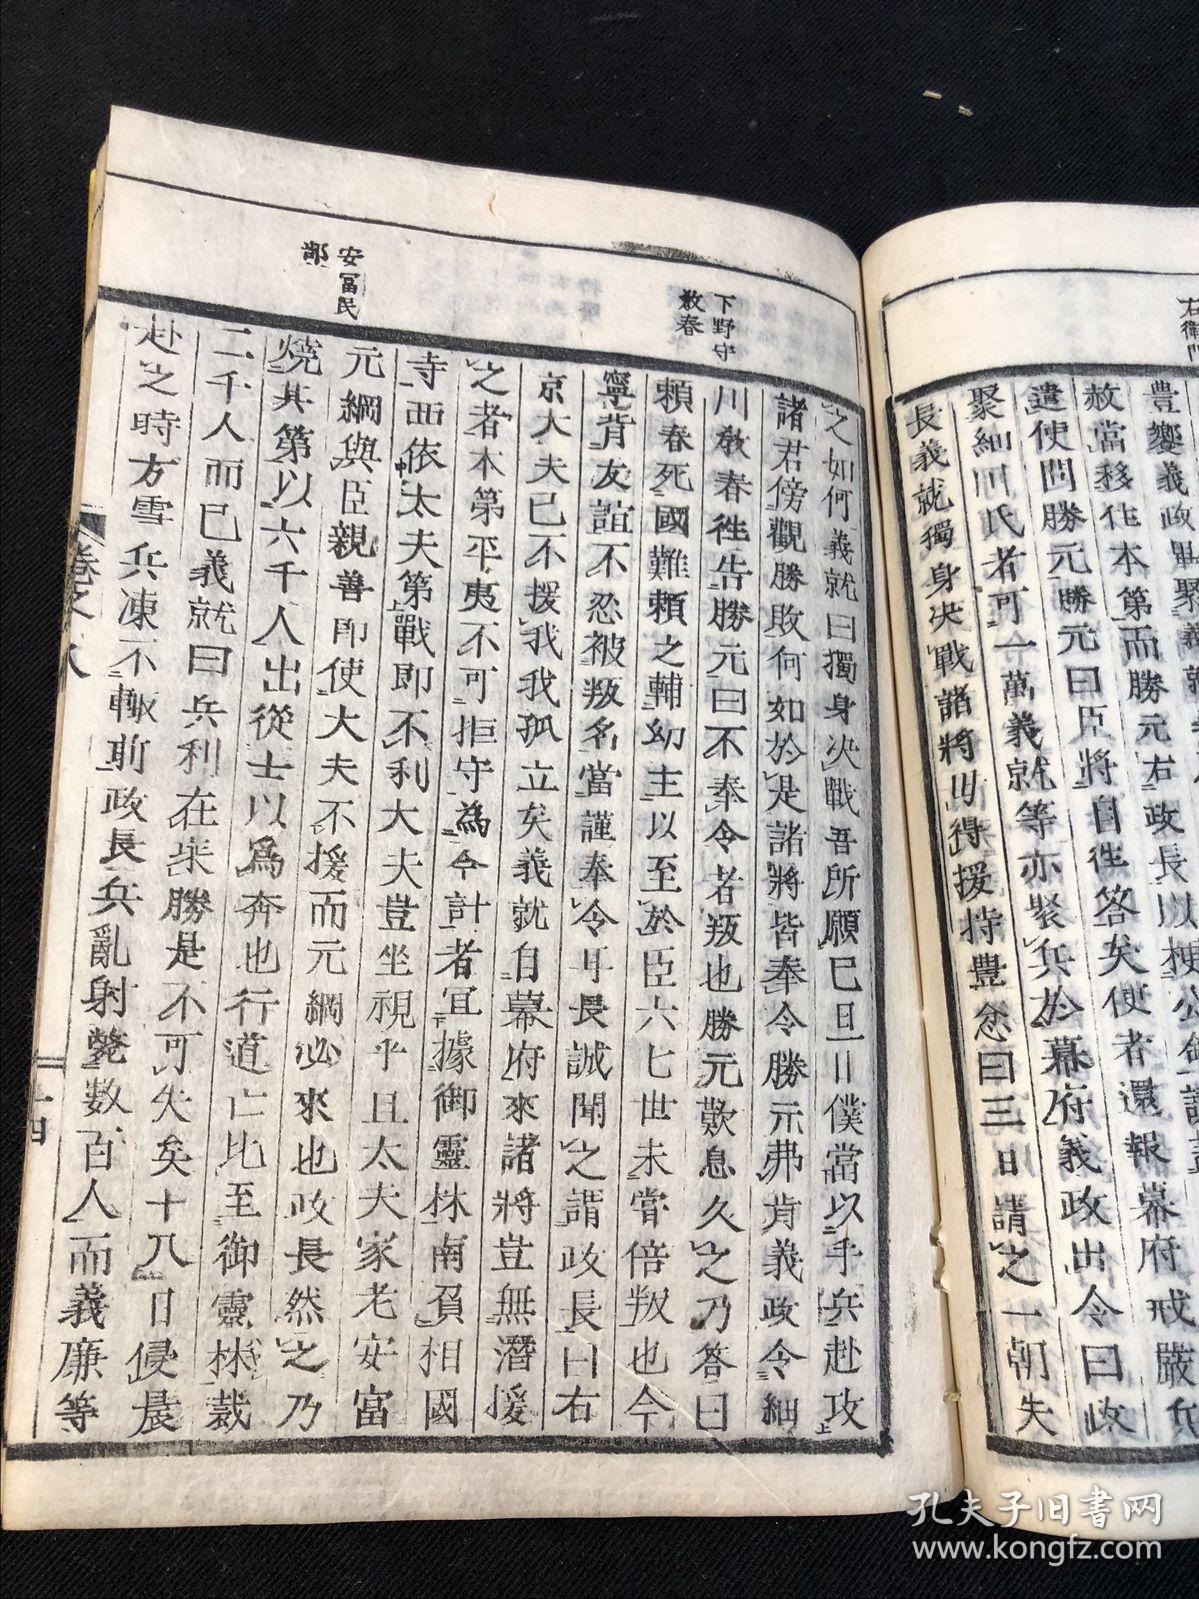 右衛門
豊嚮義政
赦當移住本第而勝元右政長以
遣使問勝元勝元曰臣將自往答矣便者還報幕府戒嚴兵
聚細川氏者可一萬義就等亦聚兵於幕府義政出令曰政
長義就獨身决戰諸將毋得援持豊忿曰三日請之一朝失
下野守
教春
之如何義就曰獨身决戰吾所願已旦日僕當以手兵赴攻
諸君傍觀勝敗何如於是諸將皆奉令勝元弗肯義政令細
川教春往告勝元曰不奉令者叛也勝元歎息久之乃答曰
頼春死國難頼之輔幼主以至於臣六七世未嘗倍叛也今
寧背友誼不忍被叛名當謹奉令耳長誠聞之謂政長曰右
京大夫已不援我我孤立矣義就自幕府來諸將豈無潛援
之者本第平夷不可拒守為今計者宜據御靈林南負相國
寺西依大夫第戰即不利大夫豈坐視乎且大夫家老安富
安富民
部
元綱與臣親善即使大夫不援而元綱必來也政長然之乃
燒其第以六千人出從士以爲奔也行道亡比至御靈林裁
二千人而已義就曰兵利在乘勝是不可失矣十八日侵晨
赴之時方雪兵凍不輙前政長兵亂射斃数百人而義廉等
卷之八
十四
孔夫子旧书网
www.kongfz.com